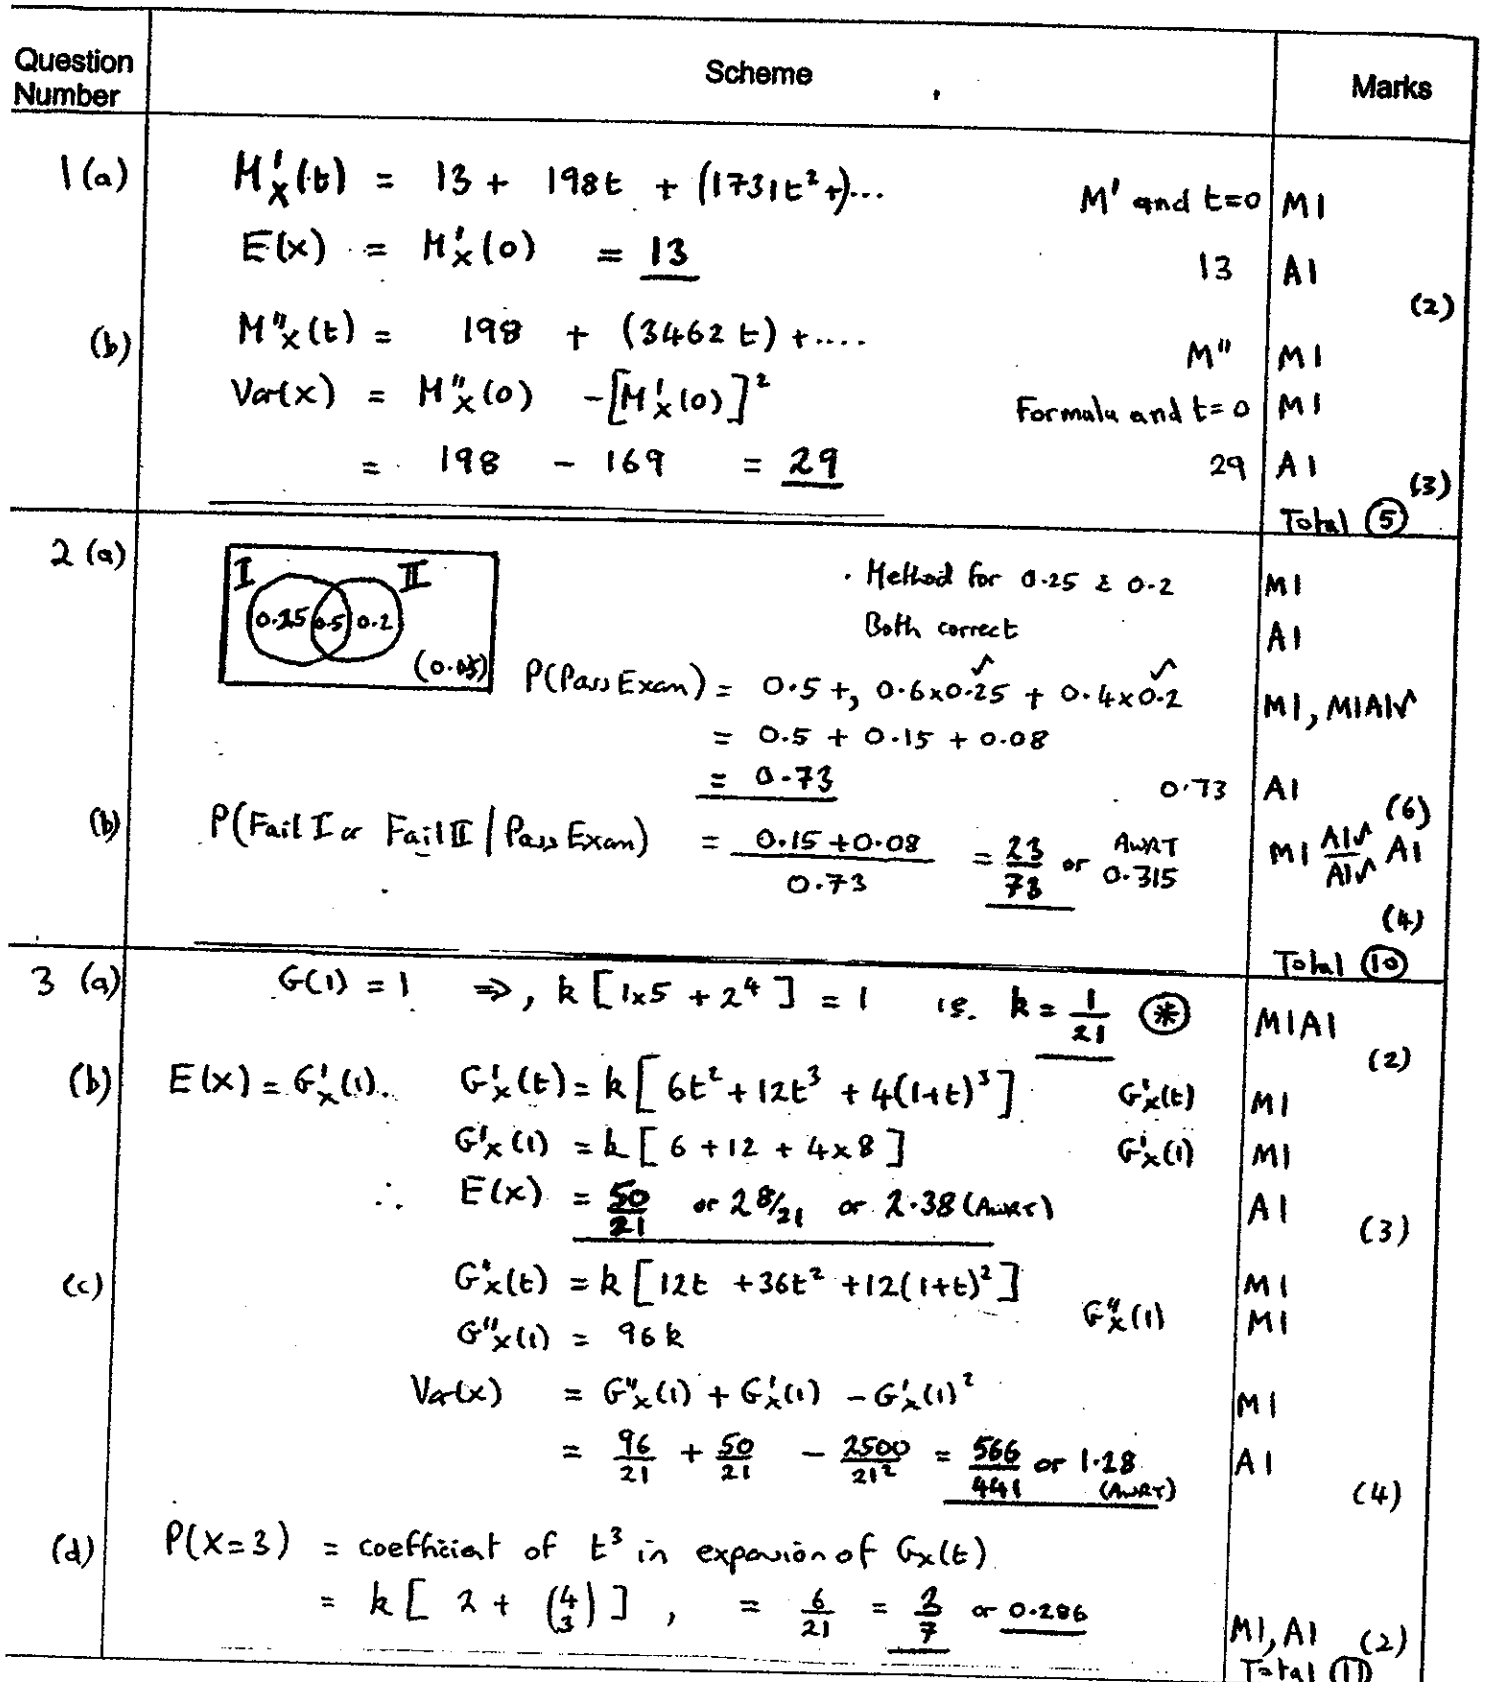 Question Number Scheme Marks
1(a) M'x(t) = 13 + 198t + (1731t² +)... M' and t=0 M1
E(x) = M'x(0) = 13 13 A1
(2)
(b) M''x(t) = 198 + (3462t) + .... M'' M1
Var(x) = M''x(0) - [M'x(0)]² Formula and t=0 M1
= 198 - 169 = 29 29 A1
(3)
Total (5)
2 (a) I II Method for 0.25 & 0.2 M1
0.25 0.5 0.2 Both correct A1
(0.05) P(Pass Exam) = 0.5 +, 0.6x0.25 + 0.4x0.2 M1, M1A1√
= 0.5 + 0.15 + 0.08
= 0.73 0.73 A1
(6)
(b) P(Fail I or Fail II / Pass Exam) = (0.15+0.08)/0.73 = 23/73 or AWRT 0.315 M1 A1√/A1√ A1
(4)
Total (10)
3 (a) G(1) = 1 ⇒, k [1x5 + 2⁴] = 1 i.e. k = 1/21 (*) M1A1
(2)
(b) E(x) = G'x(1). G'x(t) = k [6t² + 12t³ + 4(1+t)³] G'x(t) M1
G'x(1) = k [6 + 12 + 4x8] G'x(1) M1
∴ E(x) = 50/21 or 2 8/21 or 2.38 (AWRT) A1
(3)
(c) G''x(t) = k [12t + 36t² + 12(1+t)²] M1
G''x(1) = 96k G''x(1) M1
Var(x) = G''x(1) + G'x(1) - G'x(1)² M1
= 96/21 + 50/21 - 2500/21² = 566/441 or 1.28 (AWRT) A1
(4)
(d) P(X=3) = coefficient of t³ in expansion of Gx(t)
= k [2 + (4 3)], = 6/21 = 2/7 or 0.286 M1, A1 (2)
Total (11)